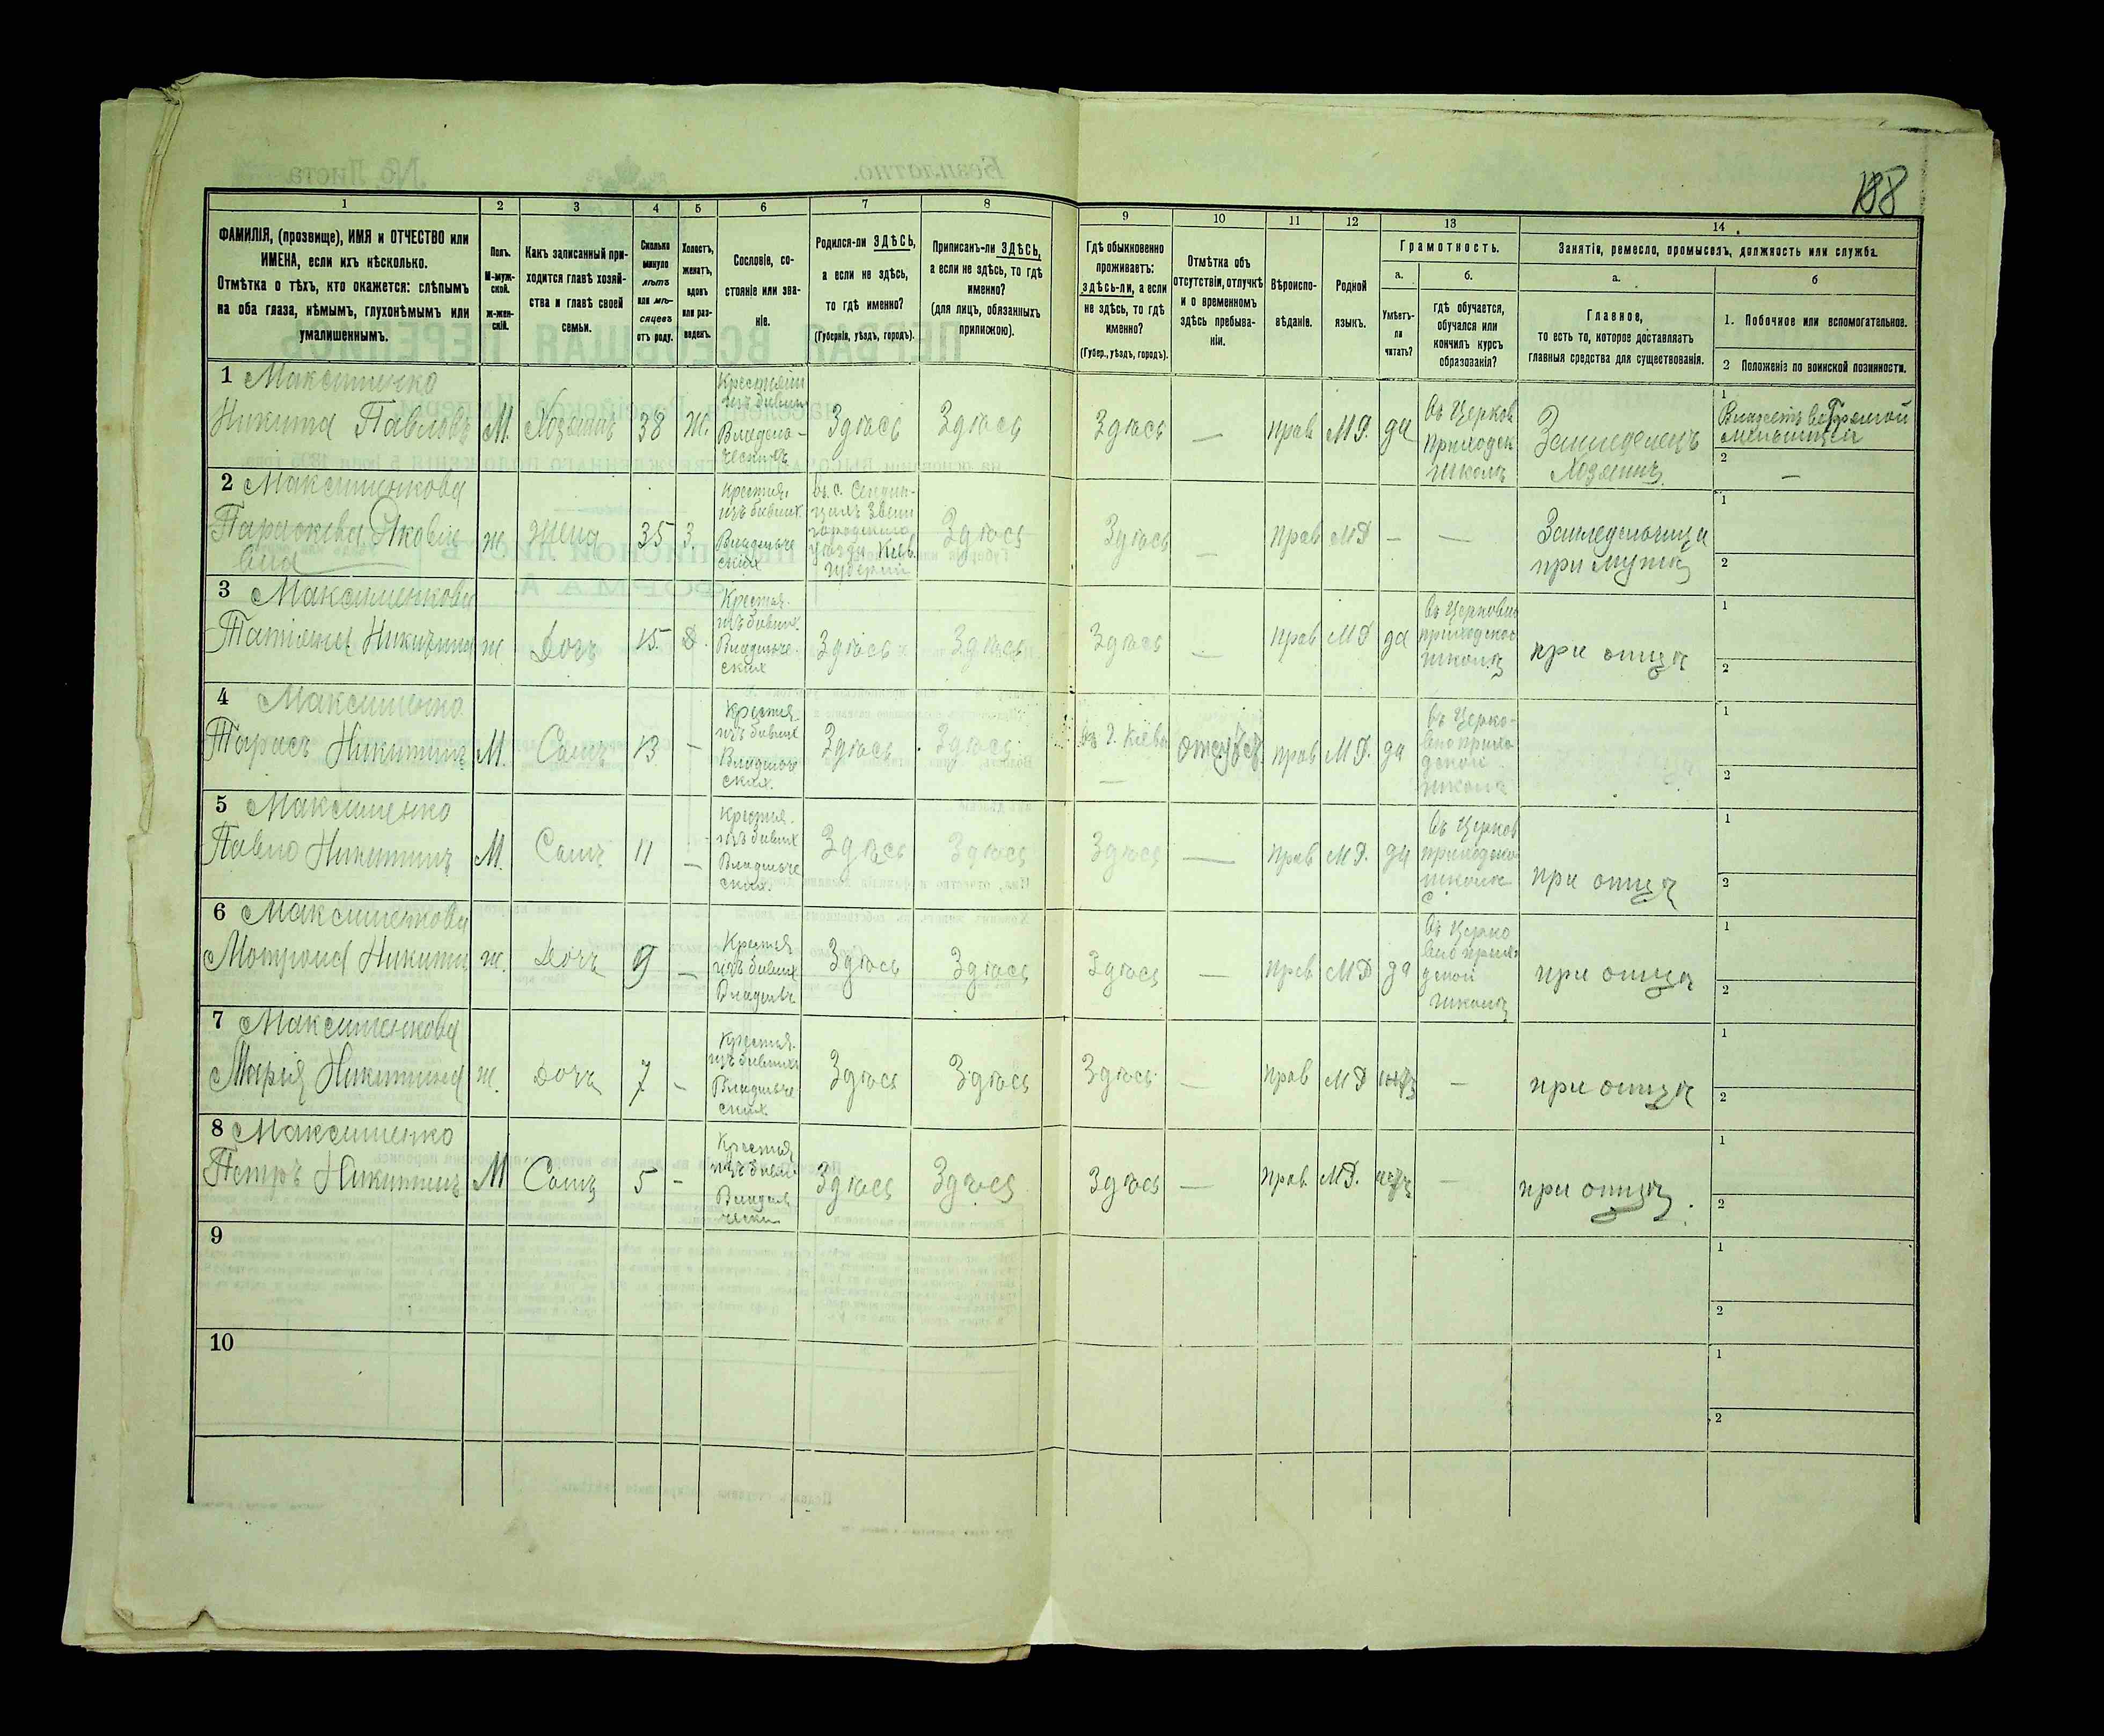 188
1 2 3 4 5 6 7 8 9 10 11 12 13 14
ФАМИЛІЯ, (прозвище), ИМЯ и ОТЧЕСТВО или
ИМЕНА, если ихъ нѣсколько.
Отмѣтка о тѣхъ, кто окажется: слѣпымъ
на оба глаза, нѣмымъ, глухонѣмымъ или
умалишеннымъ.
Полъ.
М-муж-
ской.
ж-жен-
скій.
Какъ записанный при-
ходится главѣ хозяй-
ства и главѣ своей
семьи.
Сколько
минуло
лѣтъ
или мѣ-
сяцевъ
отъ роду.
Холостъ,
женатъ,
вдовъ
или раз-
веденъ.
Сословіе, со-
стояніе или зва-
ніе.
Родился-ли ЗДѢСЬ,
а если не здѣсь,
то гдѣ именно?
(Губернія, уѣздъ, городъ).
Приписанъ-ли ЗДѢСЬ,
а если не здѣсь, то гдѣ
именно?
(для лицъ, обязанныхъ
припиской).
Гдѣ обыкновенно
проживаетъ:
здѣсь-ли, а если
не здѣсь, то гдѣ
именно?
(Губер., уѣздъ, городъ).
Отмѣтка объ
отсутствіи, отлучкѣ
и о временномъ
здѣсь пребыва-
ніи.
Вѣроиспо-
вѣданіе.
Родной
языкъ.
Грамотность.
а.
Умѣетъ-
ли
читать?
б.
гдѣ обучается,
обучался или
кончилъ курсъ
образованія?
Занятія, ремесло, промыселъ, должность или служба.
а.
Главное,
то есть то, которое доставляетъ
главныя средства для существованія.
б
1. Побочное или вспомогательное.
2 Положеніе по воинской повинности.
1 Максименко
Никита Павловъ
М.
Хозяинъ
38
Ж.
Крестьянин
изъ бывших
Владель-
ческихъ
Здѣсь
Здѣсь
Здѣсь
—
прав
М.Р.
да
въ Церков
Приходск
школѣ
Земледелецъ
Хозяинъ
1
2
—
2 Максименкова
Параскева Яковле
вна
ж.
Жена
35
З
Крестья.
изъ бывших.
Владельче
ских
Звени
городского
уѣзда Кіев.
губерніи
Здѣсь
Здѣсь
—
прав
МР
—
—
Земледельчица
при мужѣ
1
2
3 Максименкова
Татіяна Никитина
ж.
Дочь
15
Д.
Крестья.
изъ бывших.
Владельче-
ских
Здѣсь
Здѣсь
Здѣсь
—
прав
МР
да
въ Церковно
приходской
школѣ
при отцѣ
1
2
4 Максименко
Тарасъ Никитинъ
М.
Сынъ
13
—
Крестья.
изъ бывших
Владельче
ских.
Здѣсь
Здѣсь
въ г. Кіевѣ
—
отсутст.
прав
М.Р.
да
въ Церко-
вно прихо
дской
школѣ
1
2
5 Максименко
Павло Никитинъ
М.
Сынъ
11
—
Крестья.
изъ бывших
Владельче
ских.
Здѣсь
Здѣсь
Здѣсь
—
прав
М.Р.
да
въ Церков
приходско
школѣ
при отцѣ
1
2
6 Максименкова
Мотрона Никитин
ж.
Дочь
9
—
Крестья
изъ бывших
Владельч
Здѣсь
Здѣсь
Здѣсь
—
прав
МР
да
въ Церко
вно прихо
дской
школѣ
при отцѣ
1
2
7 Максименкова
Марія Никитина
ж.
Дочь
7
—
Крестья.
изъ бывших
Владельче
ских
Здѣсь
Здѣсь
Здѣсь
—
прав
МР
нѣтъ
—
при отцѣ
1
2
8 Максименко
Петръ Никитинъ
М
Сынъ
5
—
Крестья
изъ бывш.
Владель
чески
Здѣсь
Здѣсь
Здѣсь
—
прав
М.Р.
нѣтъ
—
при отцѣ.
1
2
9
1
2
10
1
2